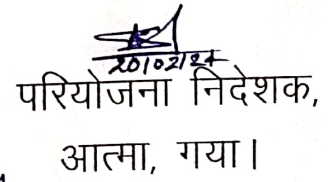 20/02/24
परियोजना निदेशक,
आत्मा, गया।